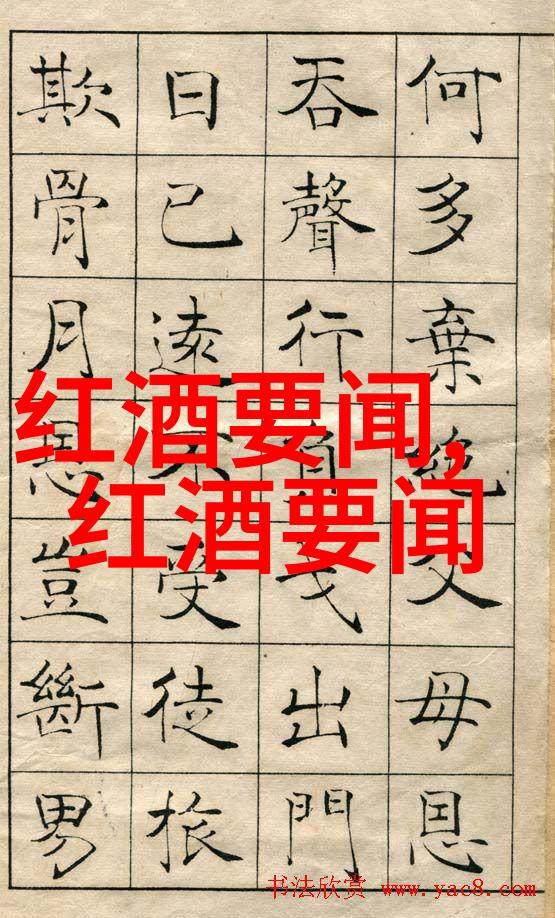 何多棄絕父母恩
吞聲行負戈出門
日已遠不受徒旅
欺骨月恩豈斷男
红酒要闻,
红酒要闻
书法欣赏 www.yac8.com